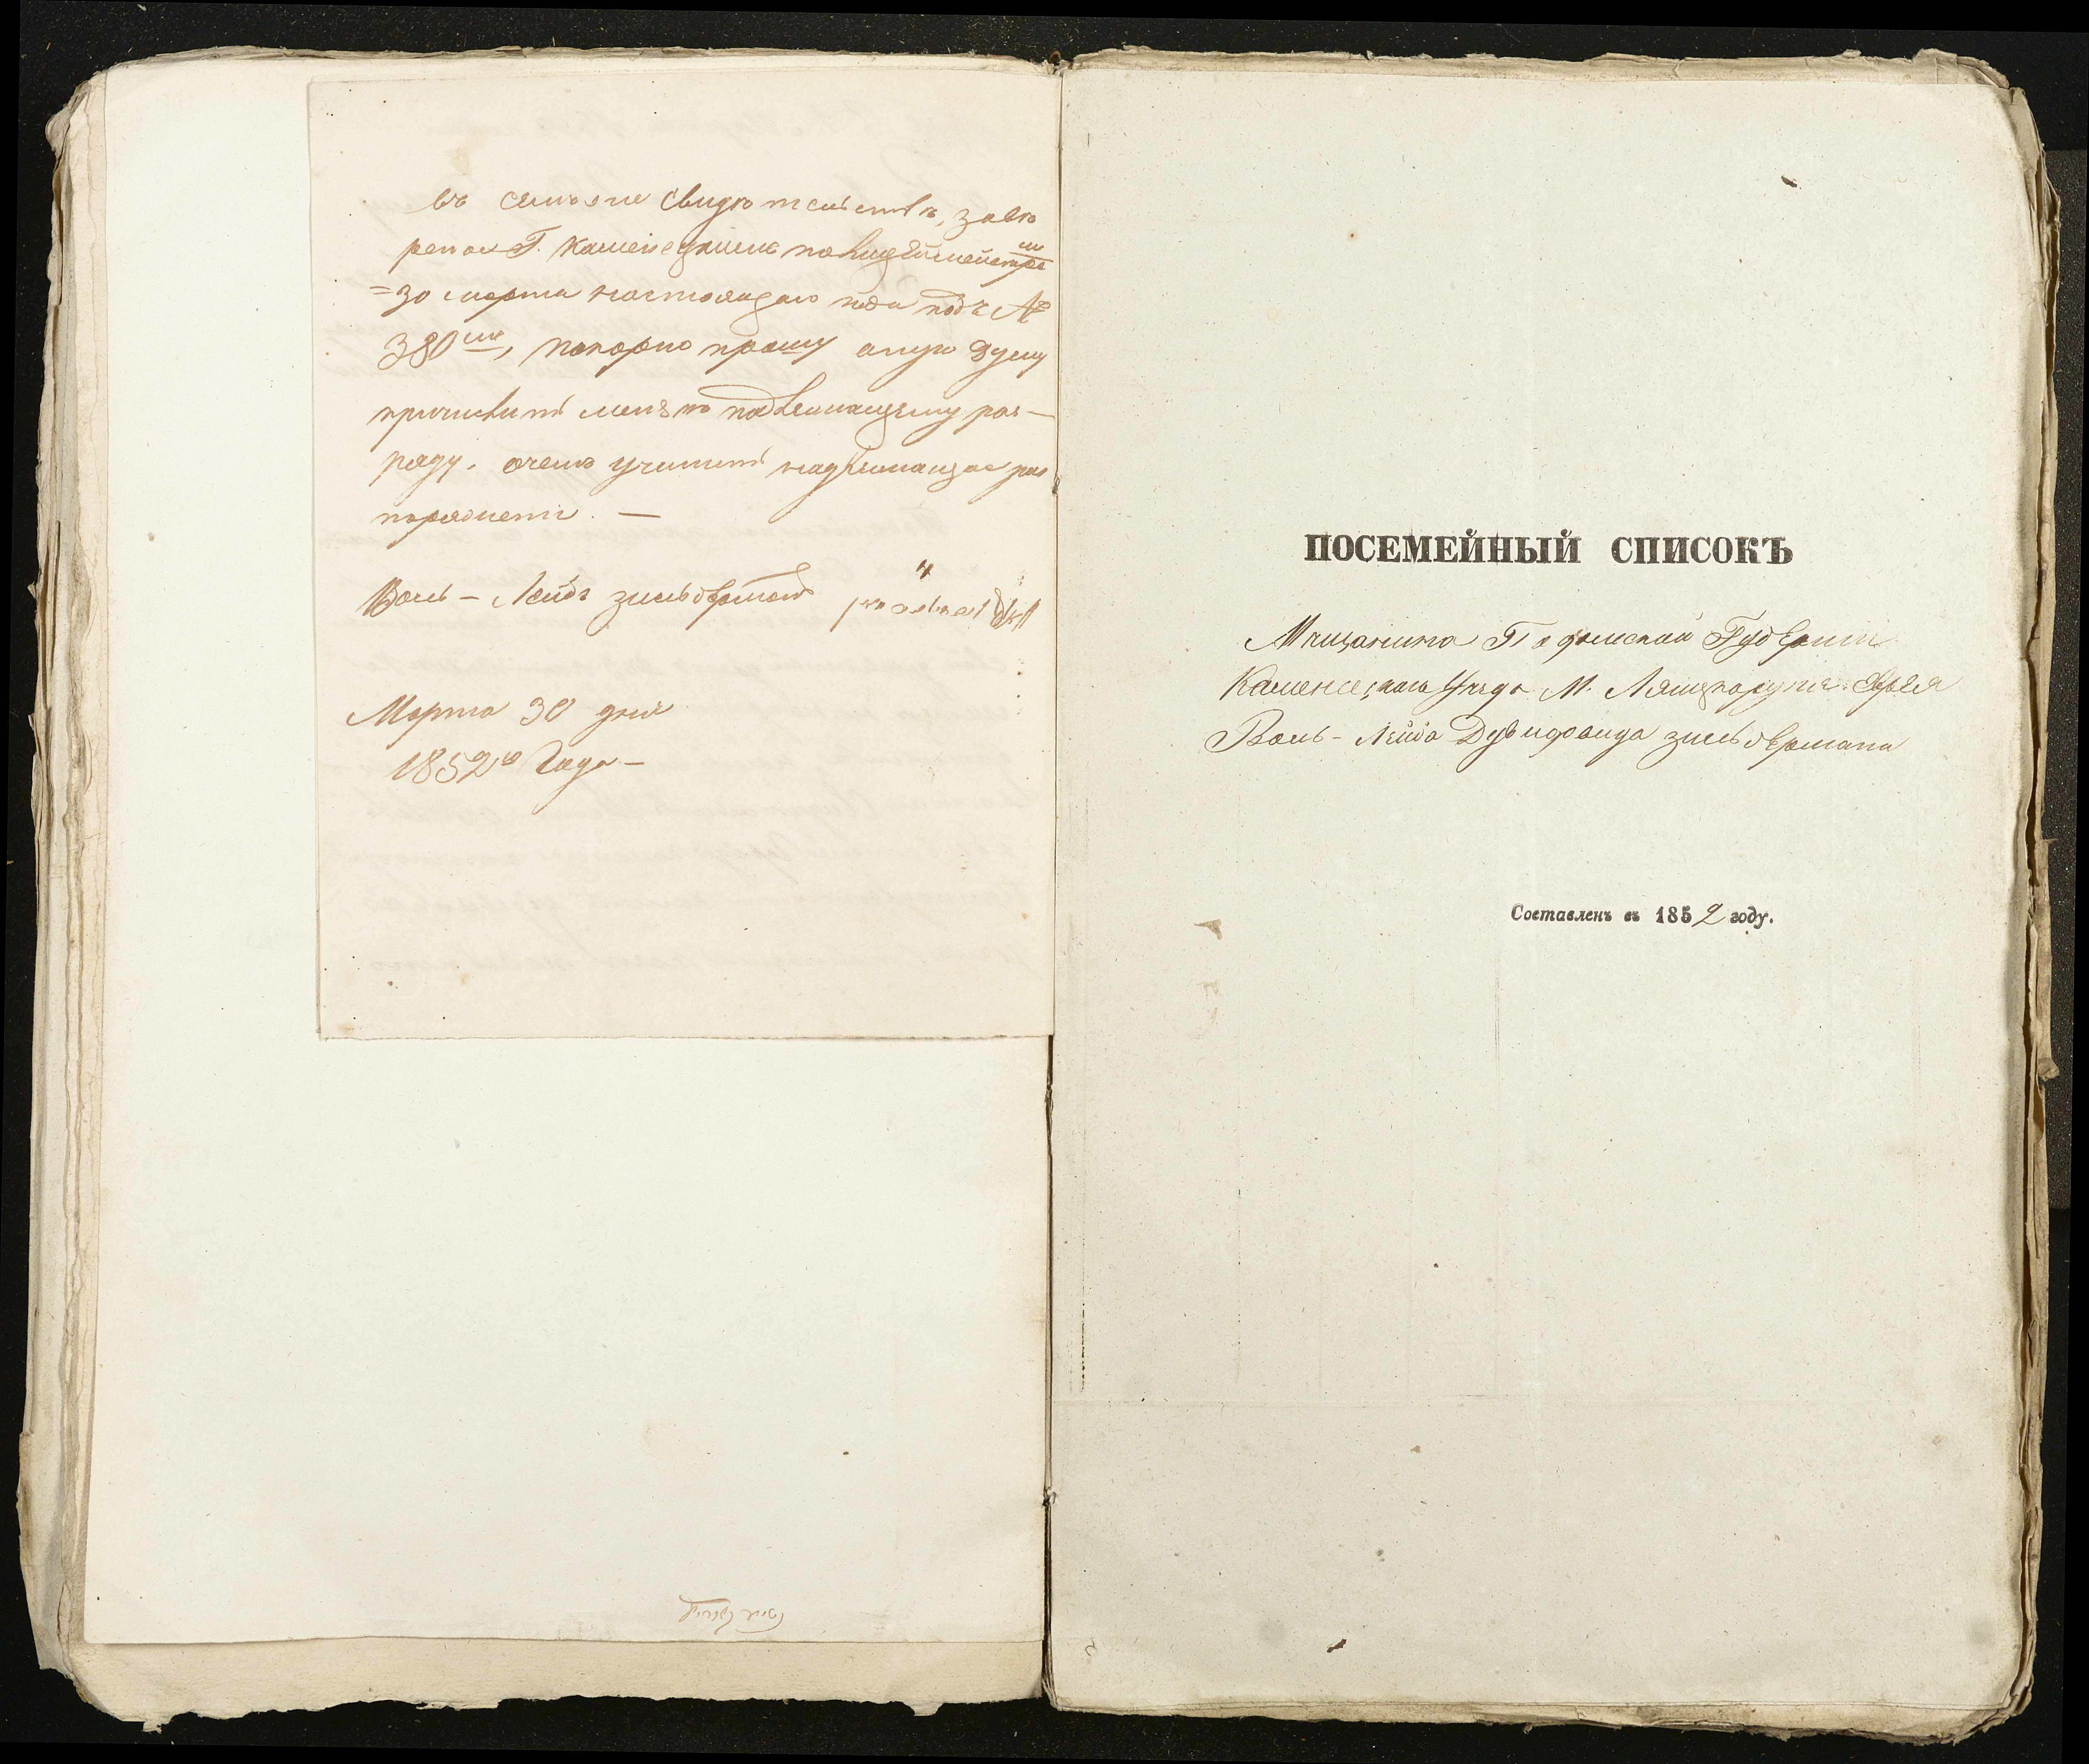 въ семъ же свидетельстве, заве
ренои Г. Каменецкимъ полицеймейстро
=30 марта настоящаго года подъ №
380мъ, покорно прошу оную Думу
причислить меня къ надлежащему раз-
ряду. о чемъ учинить надлежащое рас
поряжение. —
Воль - Лейбъ Зильберманъ
Марта 30 дня
1852го Года —
ПОСЕМЕЙНЫЙ СПИСОКЪ
Мещанина Подольской Губернии
Каменецкаго Уезда М. Лянцкоруня еврея
Воль - Лейба Дувидовича Зильбермана
Составленъ въ 1852 году.